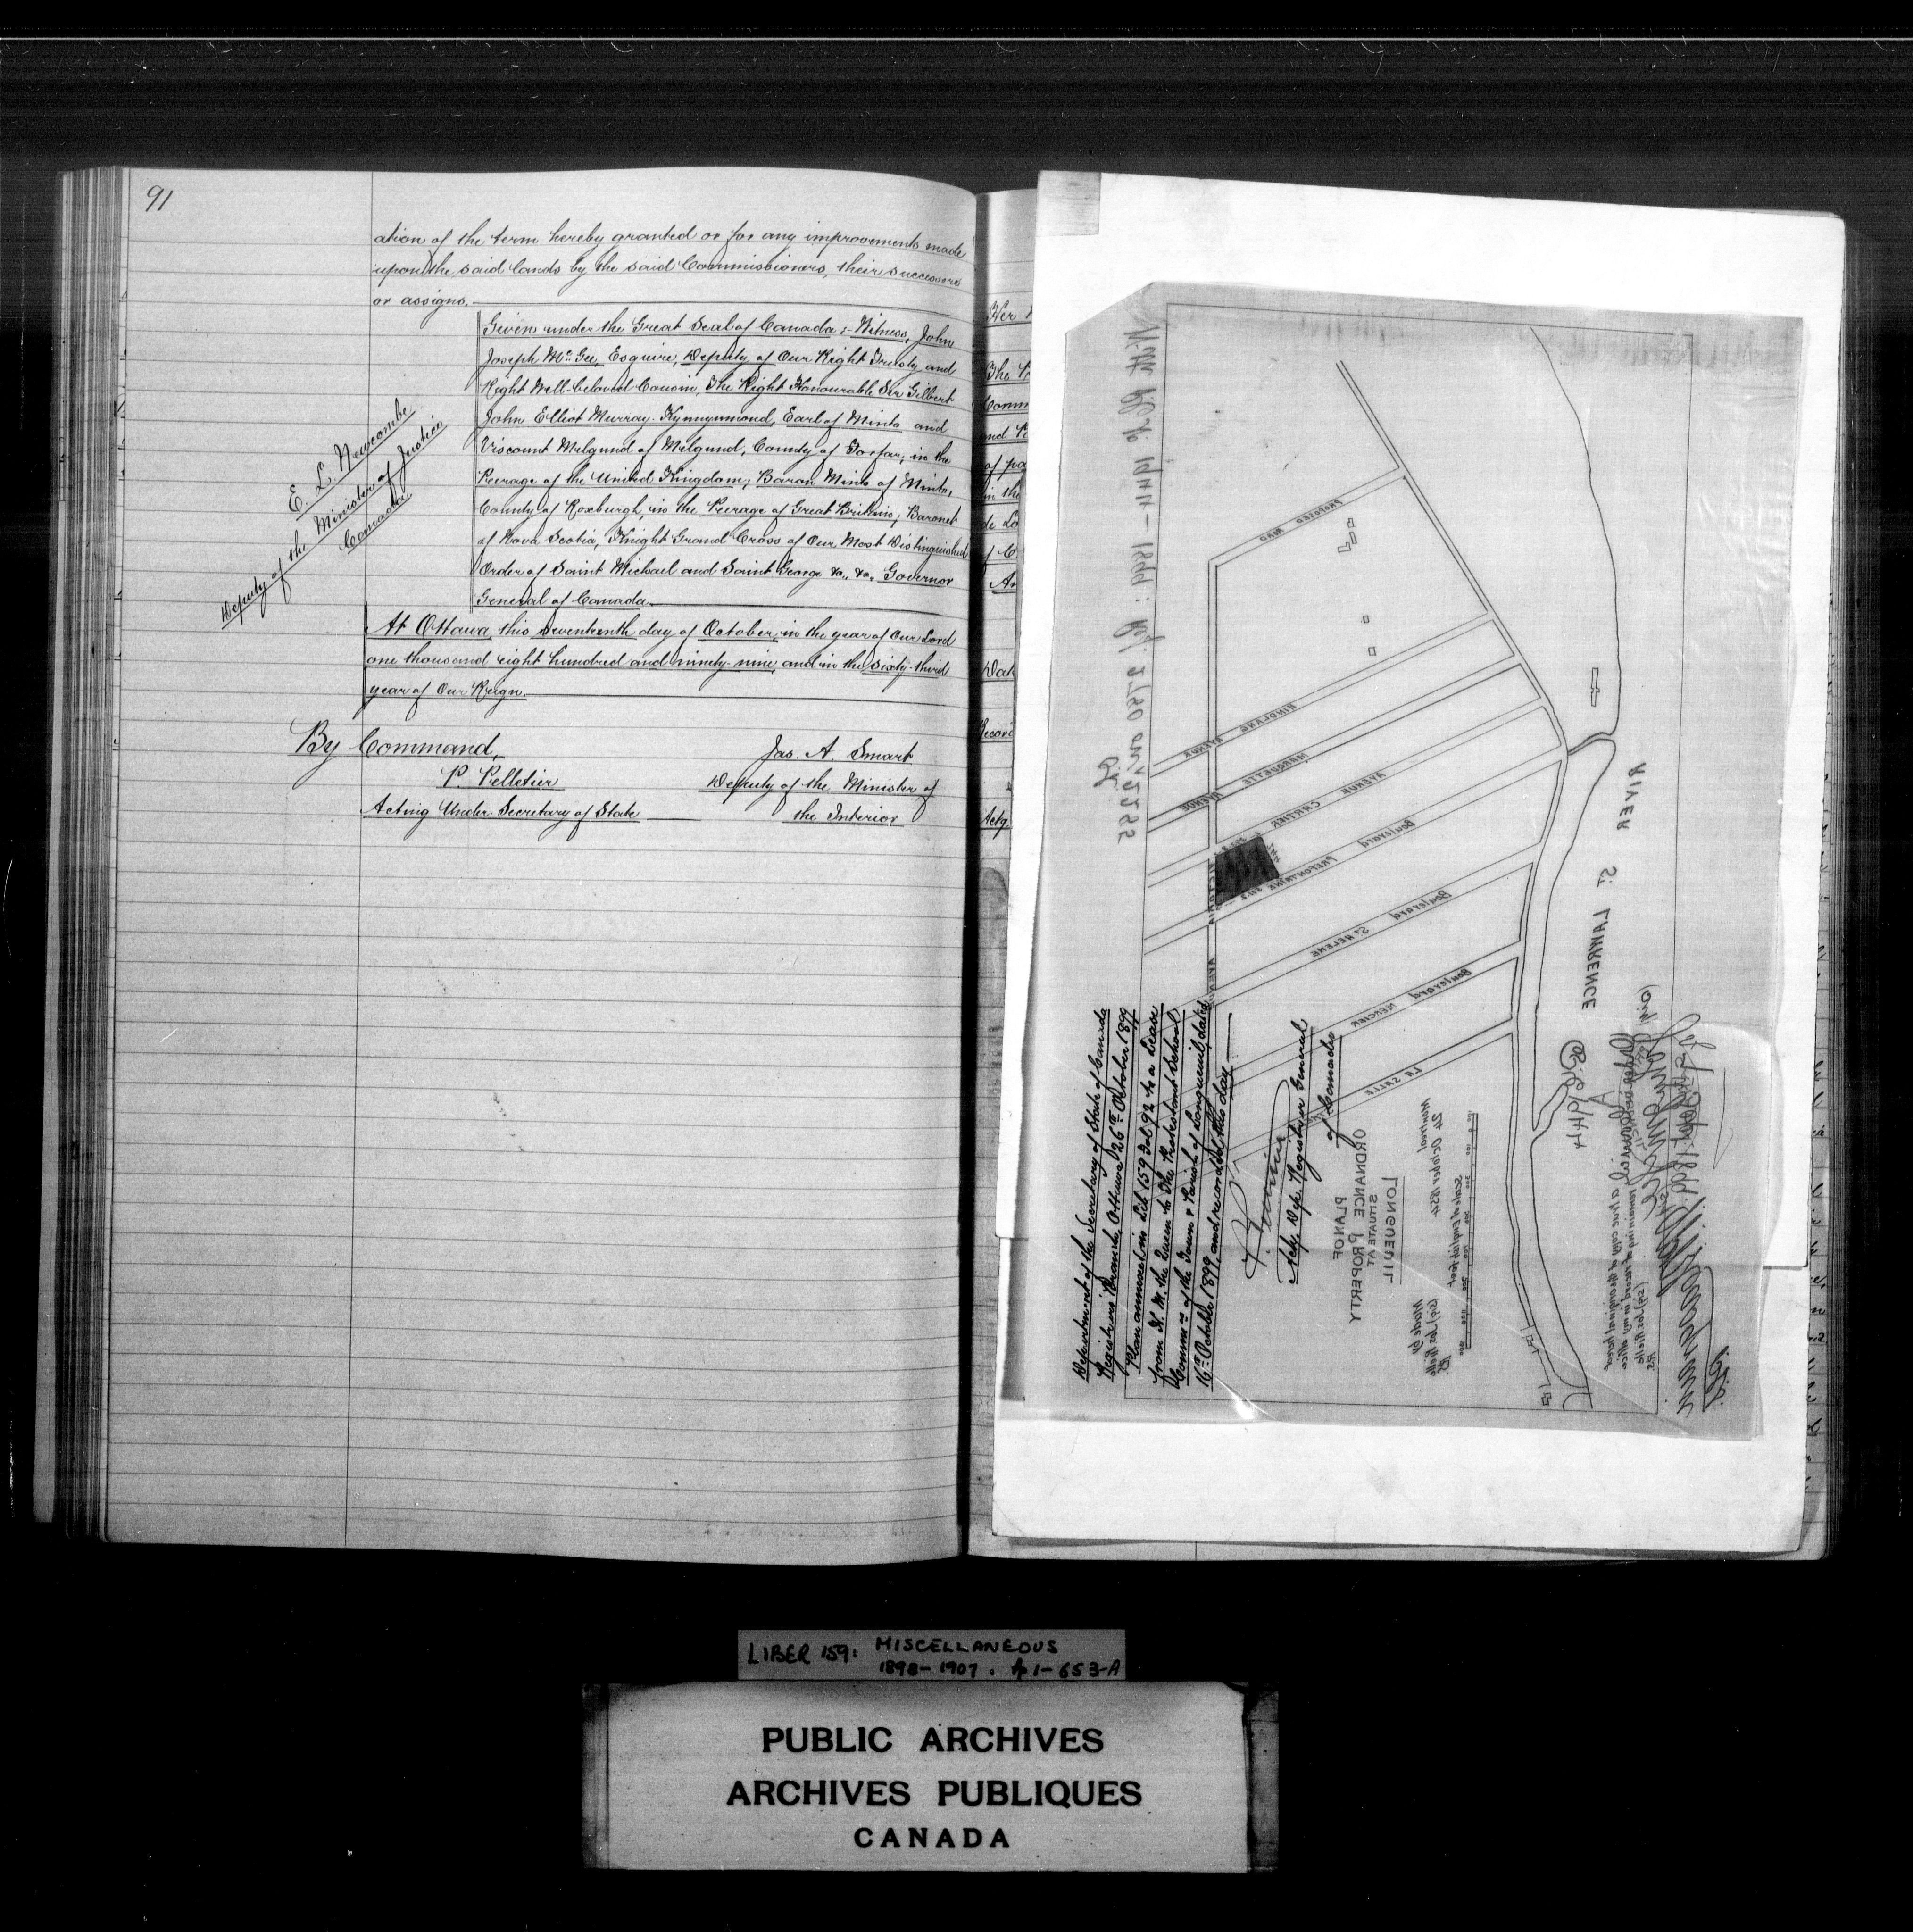 91
ation of the term hereby granted or for any improvements made
upon the said lands by the said Commissioners, their successors
or assigns.
Given under the Great Seal of Canada :- Witness, John
Joseph McGee, Esquire, Deputy of Our Right Trusty and
Right Well-beloved Cousin, The Right Honourable Sir Gilbert
John Elliot Murray-Kynynmond, Earl of Minto and
Viscount Melgund of Melgund, County of Forfar, in the
Peerage of the United Kingdom; Baron Minto of Minto,
County of Roxburgh, in the Peerage of Great Britain; Baronet
of Nova Scotia, Knight Grand Cross of Our Most Distinguished
Order of Saint Michael and Saint George &c., &c., Governor
General of Canada.
E. L. Newcombe
Deputy of the Minister of Justice
Canada.
At Ottawa this seventeenth day of October in the year of Our Lord
one thousand eight hundred and ninety-nine, and in the sixty-third
year of Our Reign.
By Command,
P. Pelletier
Acting Under-Secretary of State
Jas. A. Smart
Deputy of the Minister of
the Interior
PROPOSED ROAD
HINDLANG AVENUE
MARQUETTE AVENUE
AVENUE CARTIER
Boulevard PREFONTAINE
Boulevard St HELENE
Boulevard MERCIER
LA SALLE
VICTORIA AVENUE
RIVER St LAWRENCE
Department of the Secretary of State of Canada
Registrar's Branch, Ottawa 26th October 1899
Plan annexed in Lib 159 Fol 92 to a Lease
from H. M. the Queen to The Protestant School
Commrs of the Town & Parish of Longueuil, dated
16th October 1899, and recorded this day
Actg. Dep. Registrar General
of Canada
PLAN OF
ORDNANCE PROPERTY
SITUATE AT
LONGUEUIL
Montreal 24 October 1894
LIBER 159: MISCELLANEOUS
1898-1907. p 1-653-A
PUBLIC ARCHIVES
ARCHIVES PUBLIQUES
CANADA